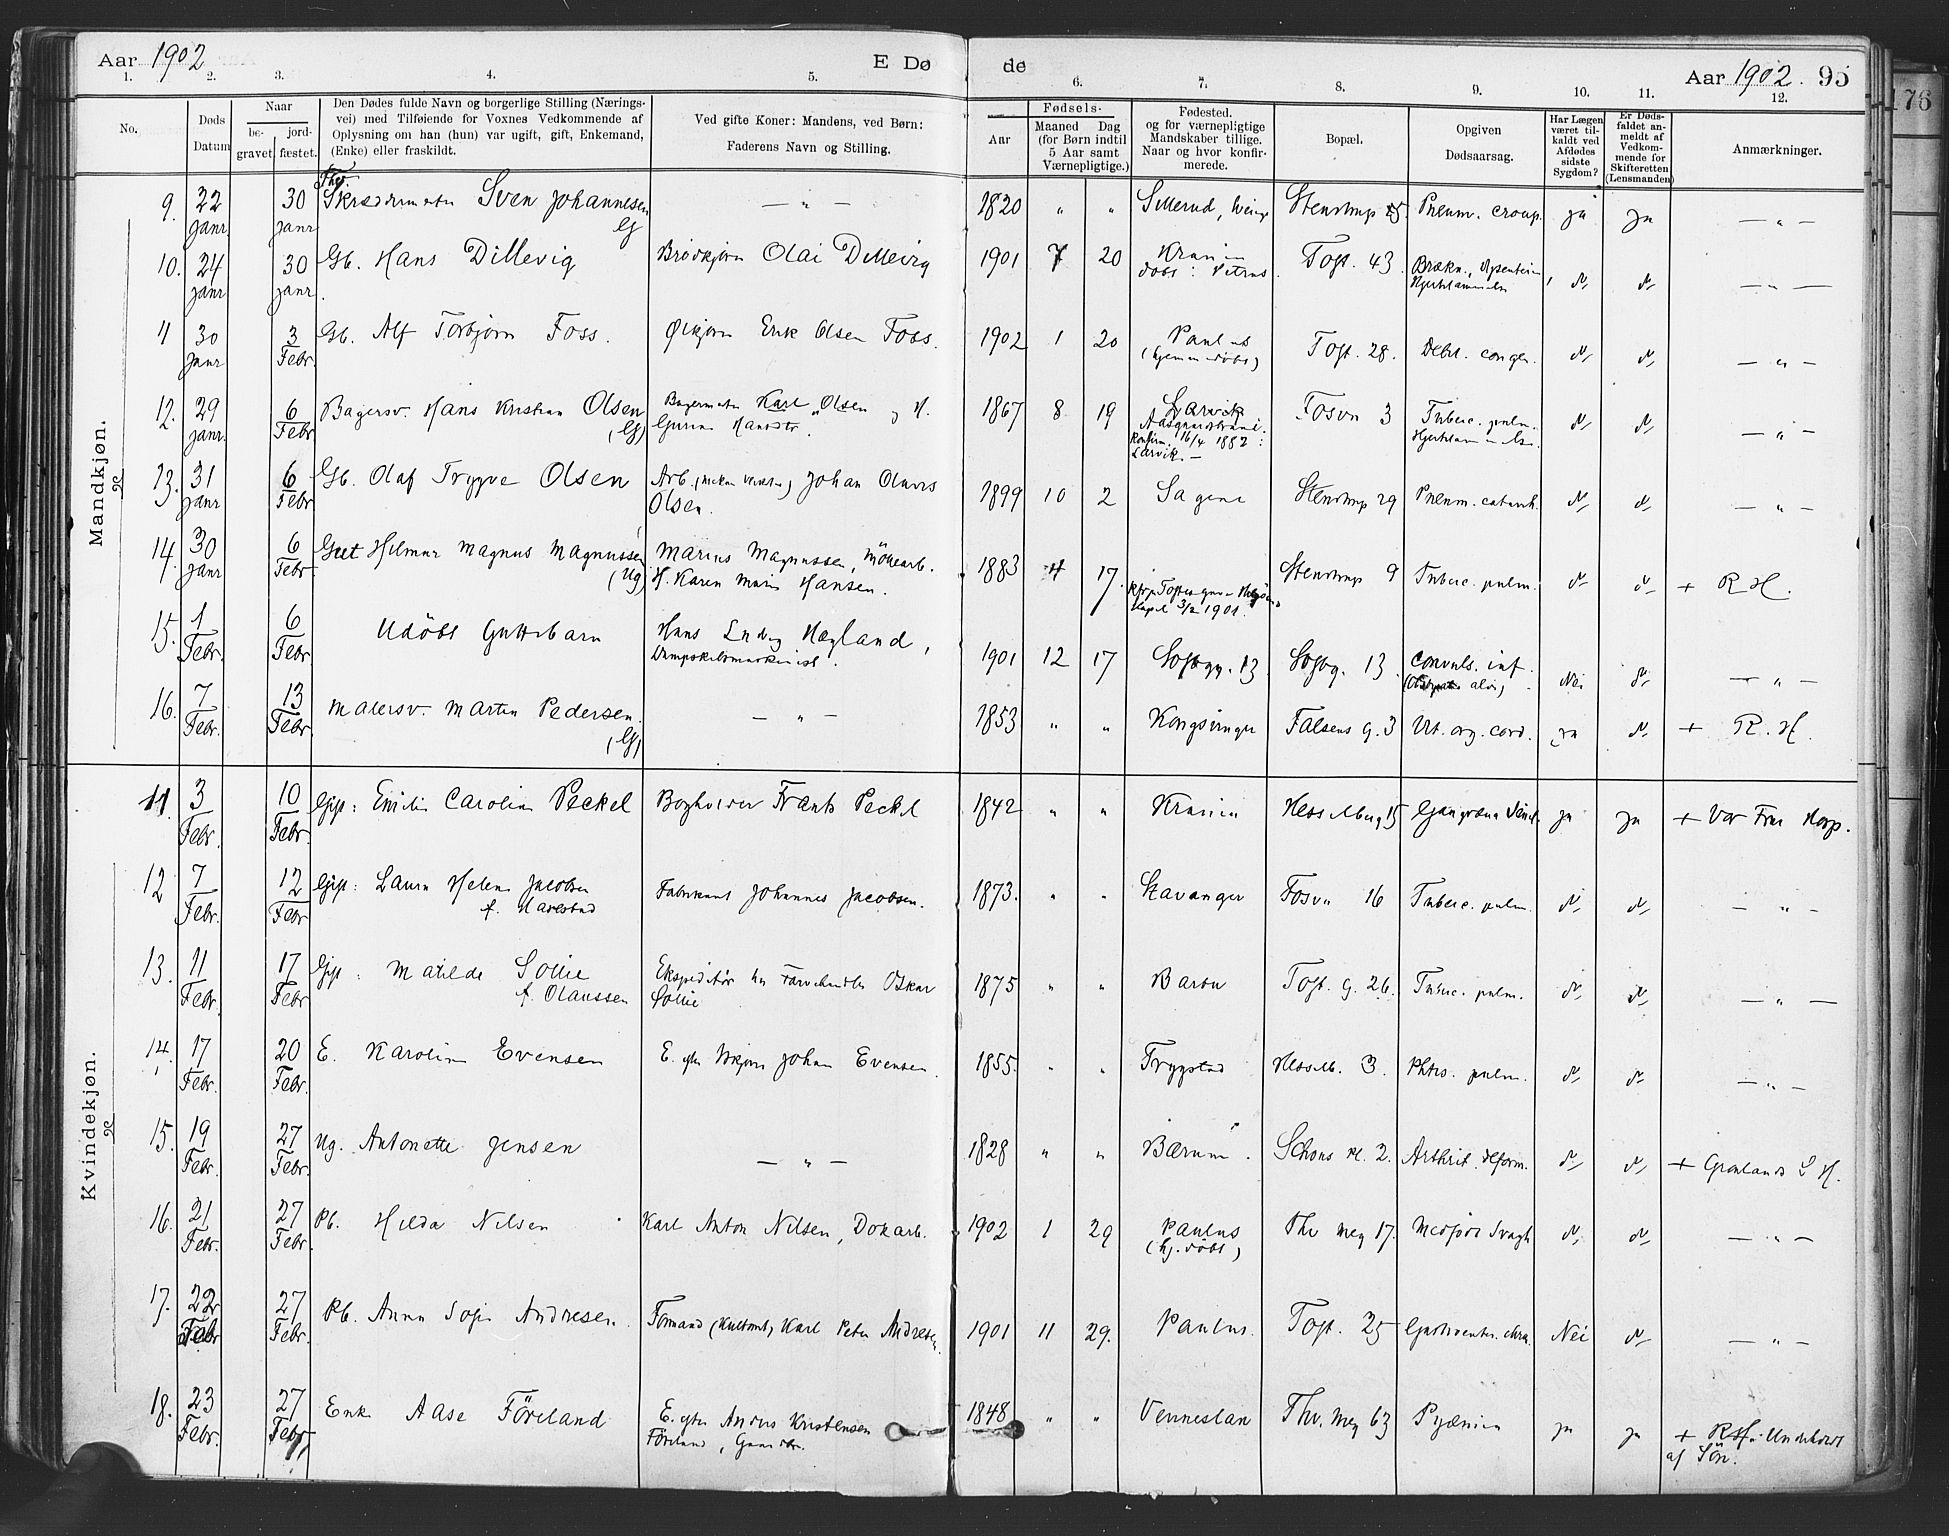 Aar 1902
E Dø
de
Aar 1902. 95
176
1. 2. 3. 4. 5. 6. 7. 8. 9. 10. 11. 12.
No.
Døds Datum
Naar
be-gravet.
jord-fæstet.
Den Dødes fulde Navn og borgerlige Stilling (Nærings-
vei) med Tilføiende for Voxnes Vedkommende af
Oplysning om han (hun) var ugift, gift, Enkemand,
(Enke) eller fraskildt.
Ved gifte Koner: Mandens, ved Børn:
Faderens Navn og Stilling.
Fødsels-
Aar
Maaned Dag
(for Børn indtil
5 Aar samt
Værnepligtige.)
Fødested.
og for værnepligtige
Mandskaber tillige.
Naar og hvor konfir-
merede.
Bopæl.
Opgiven
Dødsaarsag.
Har Lægen
været til-
kaldt ved
Afdødes
sidste
Sygdom?
Er Døds-
faldet an-
meldt af
Vedkom-
mende for
Skifteretten
(Lensmanden)
Anmærkninger.
Mandkjøn.
9. 22 Janr. 30 Janr Sven Johannesen G — " — 1820 " " Sillerud, Stenstrup 25. Pneum. croup. ja ja — " —
10. 24 Janr 30 Janr. Gb. Hans Dillevig Brødkjører Olai Dillevig 1901 7 20 Krania døbt: Petrus. Toft. 43. d. d. — " —
11 30 Janr 3 Febr. Gb. Alf Torbjørn Foss. Ølkjører Erik Olsen Foss. 1902 1 20 Paulus (hjemmedøbt) Toft. 28. Debil. congen. d. d. — " —
12. 29 Janr. 6 Febr Bagersv. Hans Kristian Olsen (G) Bagermester Karl Olsen og H. 1867 8 19 Larvik
Konfirm. 16/4 1882:
Larvik. — Fosvn 3 Tuberc. pulm. d. d. — " —
13. 31 Janr 6 Febr Gb. Olaf Trygve Olsen Arb. Johan Olaves Olsen. 1899 10 2 Sagene Stenstrup 29 Pneum. catarrh. d. d. — " —
14. 30 Janr 6 Febr. Gut Hilmar Magnus Magnussen (Ug) Marius Magnussen, Møllearb.
H. Karen Marie Hansen. 1883 4 17. Kapel 3/2 1901. Stenstrup 9 Tuberc. pulm. d. d. + R H.
15. 1 Febr. 6 Febr. Udøbt Guttebarn Hans Ludvig Hægland,
Dampskibsmaskinist. 1901 12 17 Sofbgg. 13 Sofbg. 13. Convuls. inf. Nei d. — " —
16. 7 Febr. 13 Febr. Malersv. Martin Pedersen. (G) — " — 1853 " " Kongsvinger Falsens g. 3 Vit. org. cord. ja d. + R. H.
Kvindekjøn.
11. 3 Febr. 10 Febr. Gift: Emilie Caroline Peckel Bogholder Frants Peckel 1842 " " Krania Hesselberg 15 Gangræna senil. ja ja + Vor Frue Hosp.
12 7 Febr. 12 Febr. Gift: Laura Helene Jacobsen
f. Harestad Fabrikant Johannes Jacobsen. 1873. " " Stavanger Fosvn 16 Tuberc. pulm. d. d. — " —
13. 11 Febr. 17 Febr Gift: Matilde Sollie
f. Olaussen Ekspeditør hos Farvehandler Oskar Sollie 1875 " " Barbu Toft. g. 26. Tuberc. pulm. d. d. — " —
14. 17 Febr. 20 Febr. E. Karoline Evensen E. efter Johan Evensen. 1855. " " Trygstad Hesselb. 3. Phtis. pulm. d. d. — " —
15. 19 Febr. 27 Febr. Ug. Antonette Jensen — " — 1828 " " Bærum. Schous pl. 2. Arthrit. deform. d. d. + Grønlands S H.
16. 21 Febr. 27 Febr. Pb. Hilda Nilsen Karl Anton Nilsen, Dokarb. 1902 1 29 Paulus
(hj. døbt) Thv. Mey 17. Medfødt Svagh d. d. — " —
17. 22 Febr 27 Febr. Pb. Anna Sofie Andresen. Formand Karl Peter Andresen. 1901 11 29. Paulus. Toft. 25 Gastroenter. chron. Nei d. — " —
18. 23 Febr. 27 Febr. Enke Aase Föreland E. efter Anders Kristensen
Föreland, Gaardbr. 1848 " " Venneslan Thv. Mey 63 Pyæmia ja ja + RH. Underholdt
af Sön.